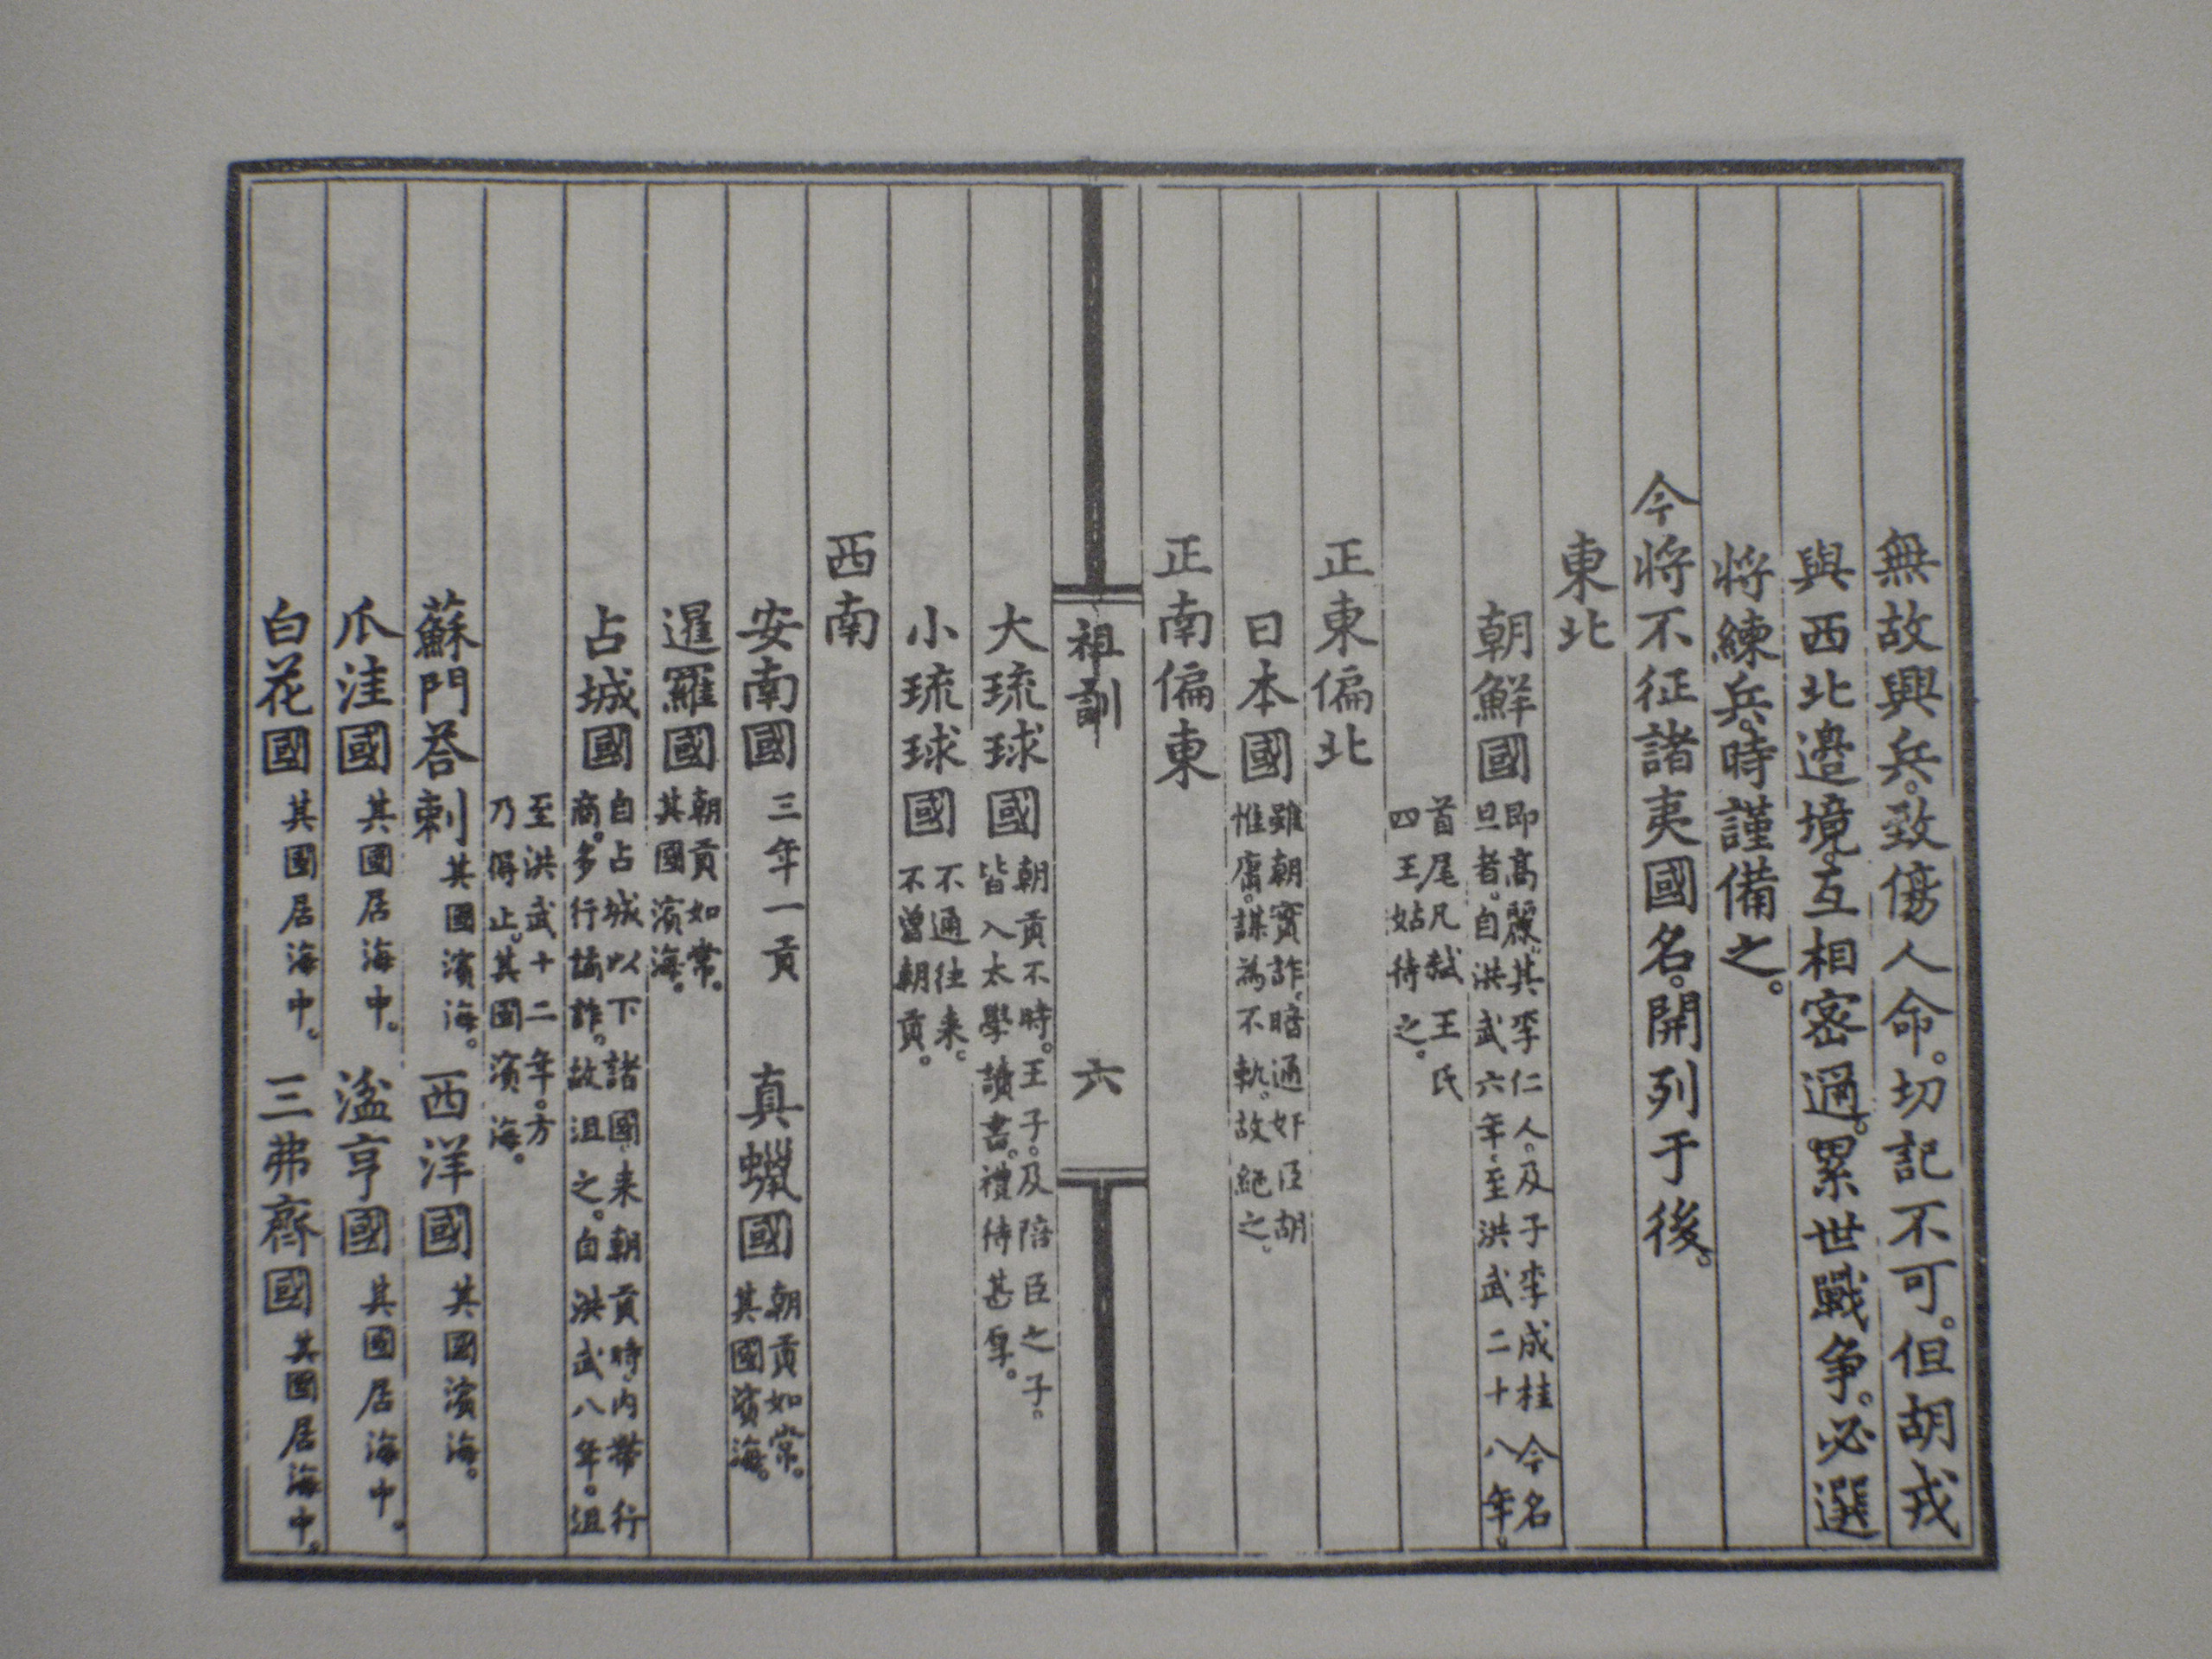 無故興兵。致傷人命。切記不可。但胡戎
與西北邊境。互相密邇。累世戰爭。必選
將練兵。時謹備之。
今將不征諸夷國名。開列于後。
東北
朝鮮國
即高麗。其李仁人。及子李成桂今名
旦者。自洪武六年。至洪武二十八年。
首尾凡弒王氏
四王姑待之。
正東偏北
日本國
雖朝實詐。暗通奸臣胡
惟庸。謀為不軌。故絕之。
正南偏東
祖訓
六
大琉球國
朝貢不時。王子。及陪臣之子。
皆入太學讀書。禮待甚厚。
小琉球國
不通往来。
不曾朝貢。
西南
安南國 三年一貢
真蠟國
朝貢如常。
其國濱海。
暹羅國
朝貢如常。
其國濱海。
占城國
自占城以下諸國来朝貢時。内帶行
商。多行譎詐。故沮之。自洪武八年。沮
至洪武十二年。方
乃得止。其國濱海。
蘇門荅剌 其國濱海。 西洋國 其國濱海。
爪洼國 其國居海中。 湓亨國 其國居海中。
白花國 其國居海中。 三弗齊國 其國居海中。